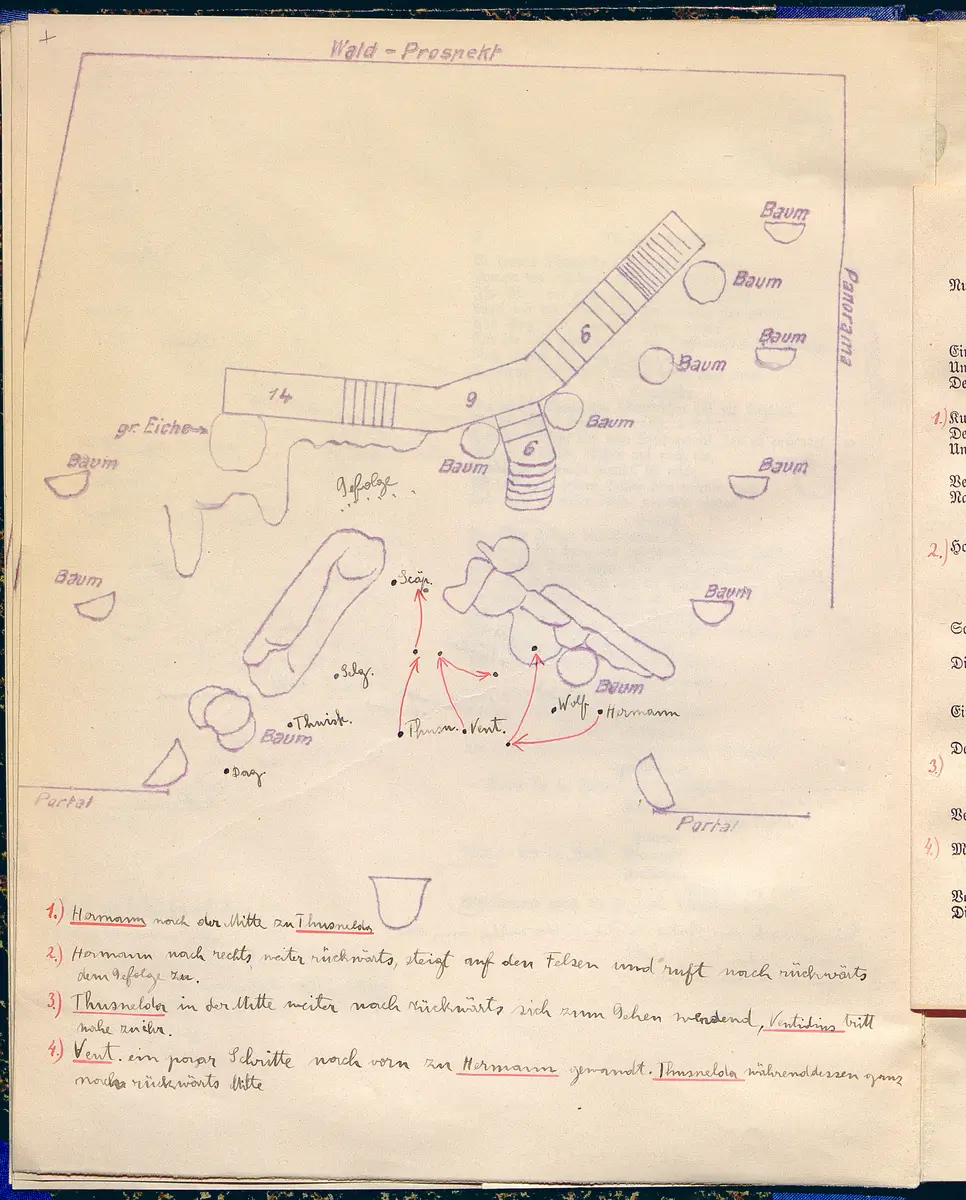 +
Wald - Prospekt
Baum
Baum
Panorama
6
Baum
Baum
14
9
gr. Eiche
Baum
6
Baum
Baum
Baum
Gefolge
Baum
Scäp.
Baum
Selg.
Baum
Wolf.
Hermann
Thuisk.
Thusn.
Vent.
Baum
Dag.
Portal
Portal
1.) Hermann nach der Mitte zu Thusnelda
2.) Hermann nach rechts, weiter rückwärts, steigt auf den Felsen und ruft nach rückwärts
dem Gefolge zu.
3.) Thusnelda in der Mitte weiter nach rückwärts sich zum Gehen wendend, Ventidius tritt
nahe zu ihr.
4.) Vent. ein paar Schritte nach vorn zu Hermann gewandt. Thusnelda währenddessen ganz
nach rückwärts Mitte
Nu
Ein
Un
De
1.) Ku
De
Un
Ve
Na
2.) Ho
Sc
Di
Ei
Da
3.)
Ve
4.) M
Ve
Di